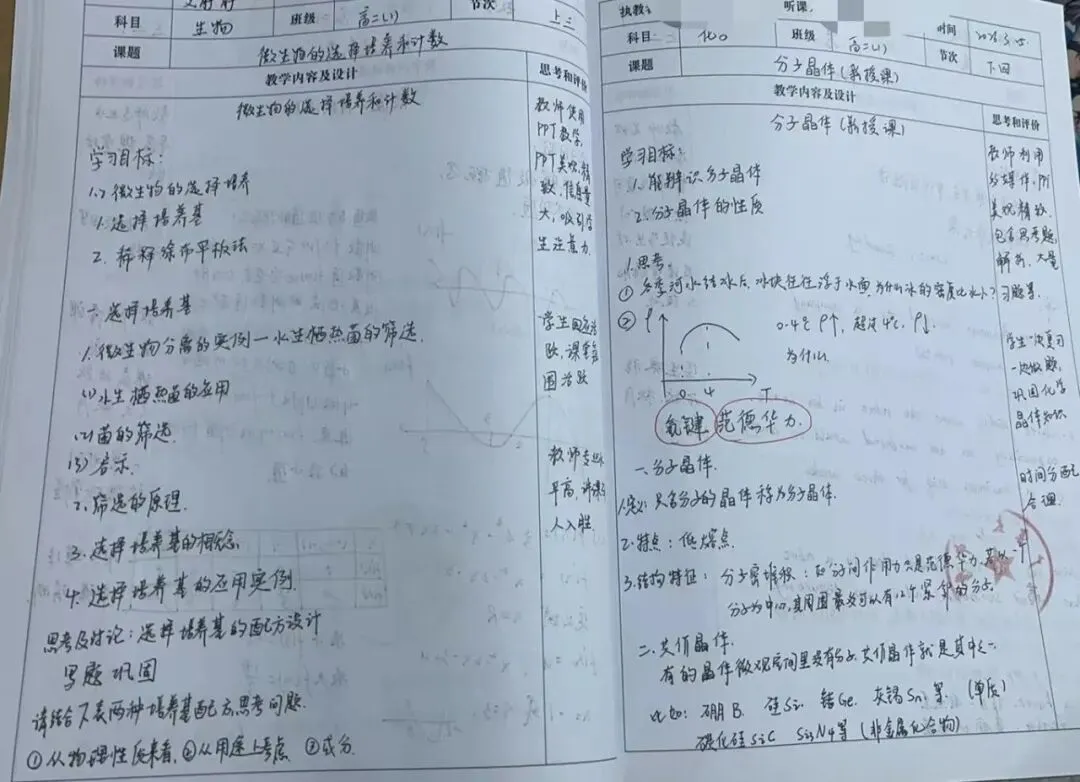 科目 生物 班级 高二(1) 节次 上三
课题 微生物的选择培养和计数
教学内容及设计 思考和评价
微生物的选择培养和计数
学习目标:
微生物的选择培养
1. 选择培养基
2. 稀释涂布平板法
二、选择培养基
1. 微生物分离的实例一水生栖热菌的筛选.
(1) 水生栖热菌的应用
(2) 菌的筛选.
(3) 启示
2. 筛选的原理.
3. 选择培养基的概念.
4. 选择培养基的应用实例.
思考及讨论: 选择培养基的配方设计
习题巩固
请结合下表两种培养基配方思考问题.
①从物理性质来看, ②从用途上考虑 ③成分.
教师使用
PPT教学,
PPT美观,精
致,信息量
大,吸引学
生注意力.
学生回答活
跃,课堂氛
围活跃
教师专业水
平高,讲课引
人入胜
执教: 听课:
科目 化 班级 高二(1) 时间
课题 分子晶体(新授课) 节次 下四
教学内容及设计 思考和评价
分子晶体(新授课)
学习目标:
1. 能辨识分子晶体
2. 分子晶体的性质
1. 思考.
① 冬季河水结冰后,冰块往往浮于水面,为什么冰的密度比水小?
② ρ 0-4℃ ρ↑, 超过4℃, ρ↓.
为什么.
0 4 T
氢键 范德华力.
一、分子晶体.
1. 定义: 只含分子的晶体称为分子晶体.
2. 特点: 低熔点.
3. 结构特征: 分子密堆积: 分子间作用力只是范德华力,若以一个
分子为中心,其周围最多可以有12个紧邻的分子.
二、共价晶体.
有的晶体微观空间里没有分子,共价晶体就是其中之一.
比如: 硼B. 硅Si. 锗Ge. 灰锡Sn等. (单质)
碳化硅SiC Si3N4等 (非金属化合物)
教师利用
多媒体,PPT
美观精致,
包含思考题,
解析,大量
习题等.
学生一边复习
一边做题,
巩固化学
晶体知识
时间分配
合理.